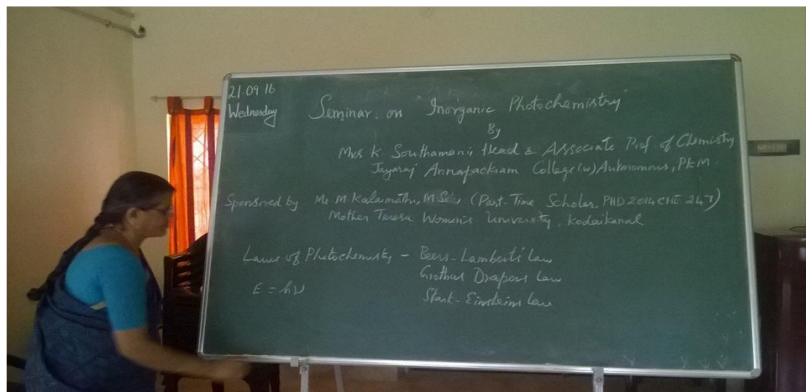 21.09.16
Wednesday
Seminar on "Inorganic Photochemistry"
By
Mrs K. Southamani Head & Associate Prof of Chemistry
Jayaraj Annapackiam College (w) Autonomous, PKM.
Sponsored by Ms M Kalaimathi, M.Sc., (Part-Time Scholar, PHD 2014 CHE 247)
Mother Teresa Women's University, Kodaikanal
Laws of Photochemistry - Beers-Lambert's law
Grothus Drapers Law
E = hν
Stark-Einstein law